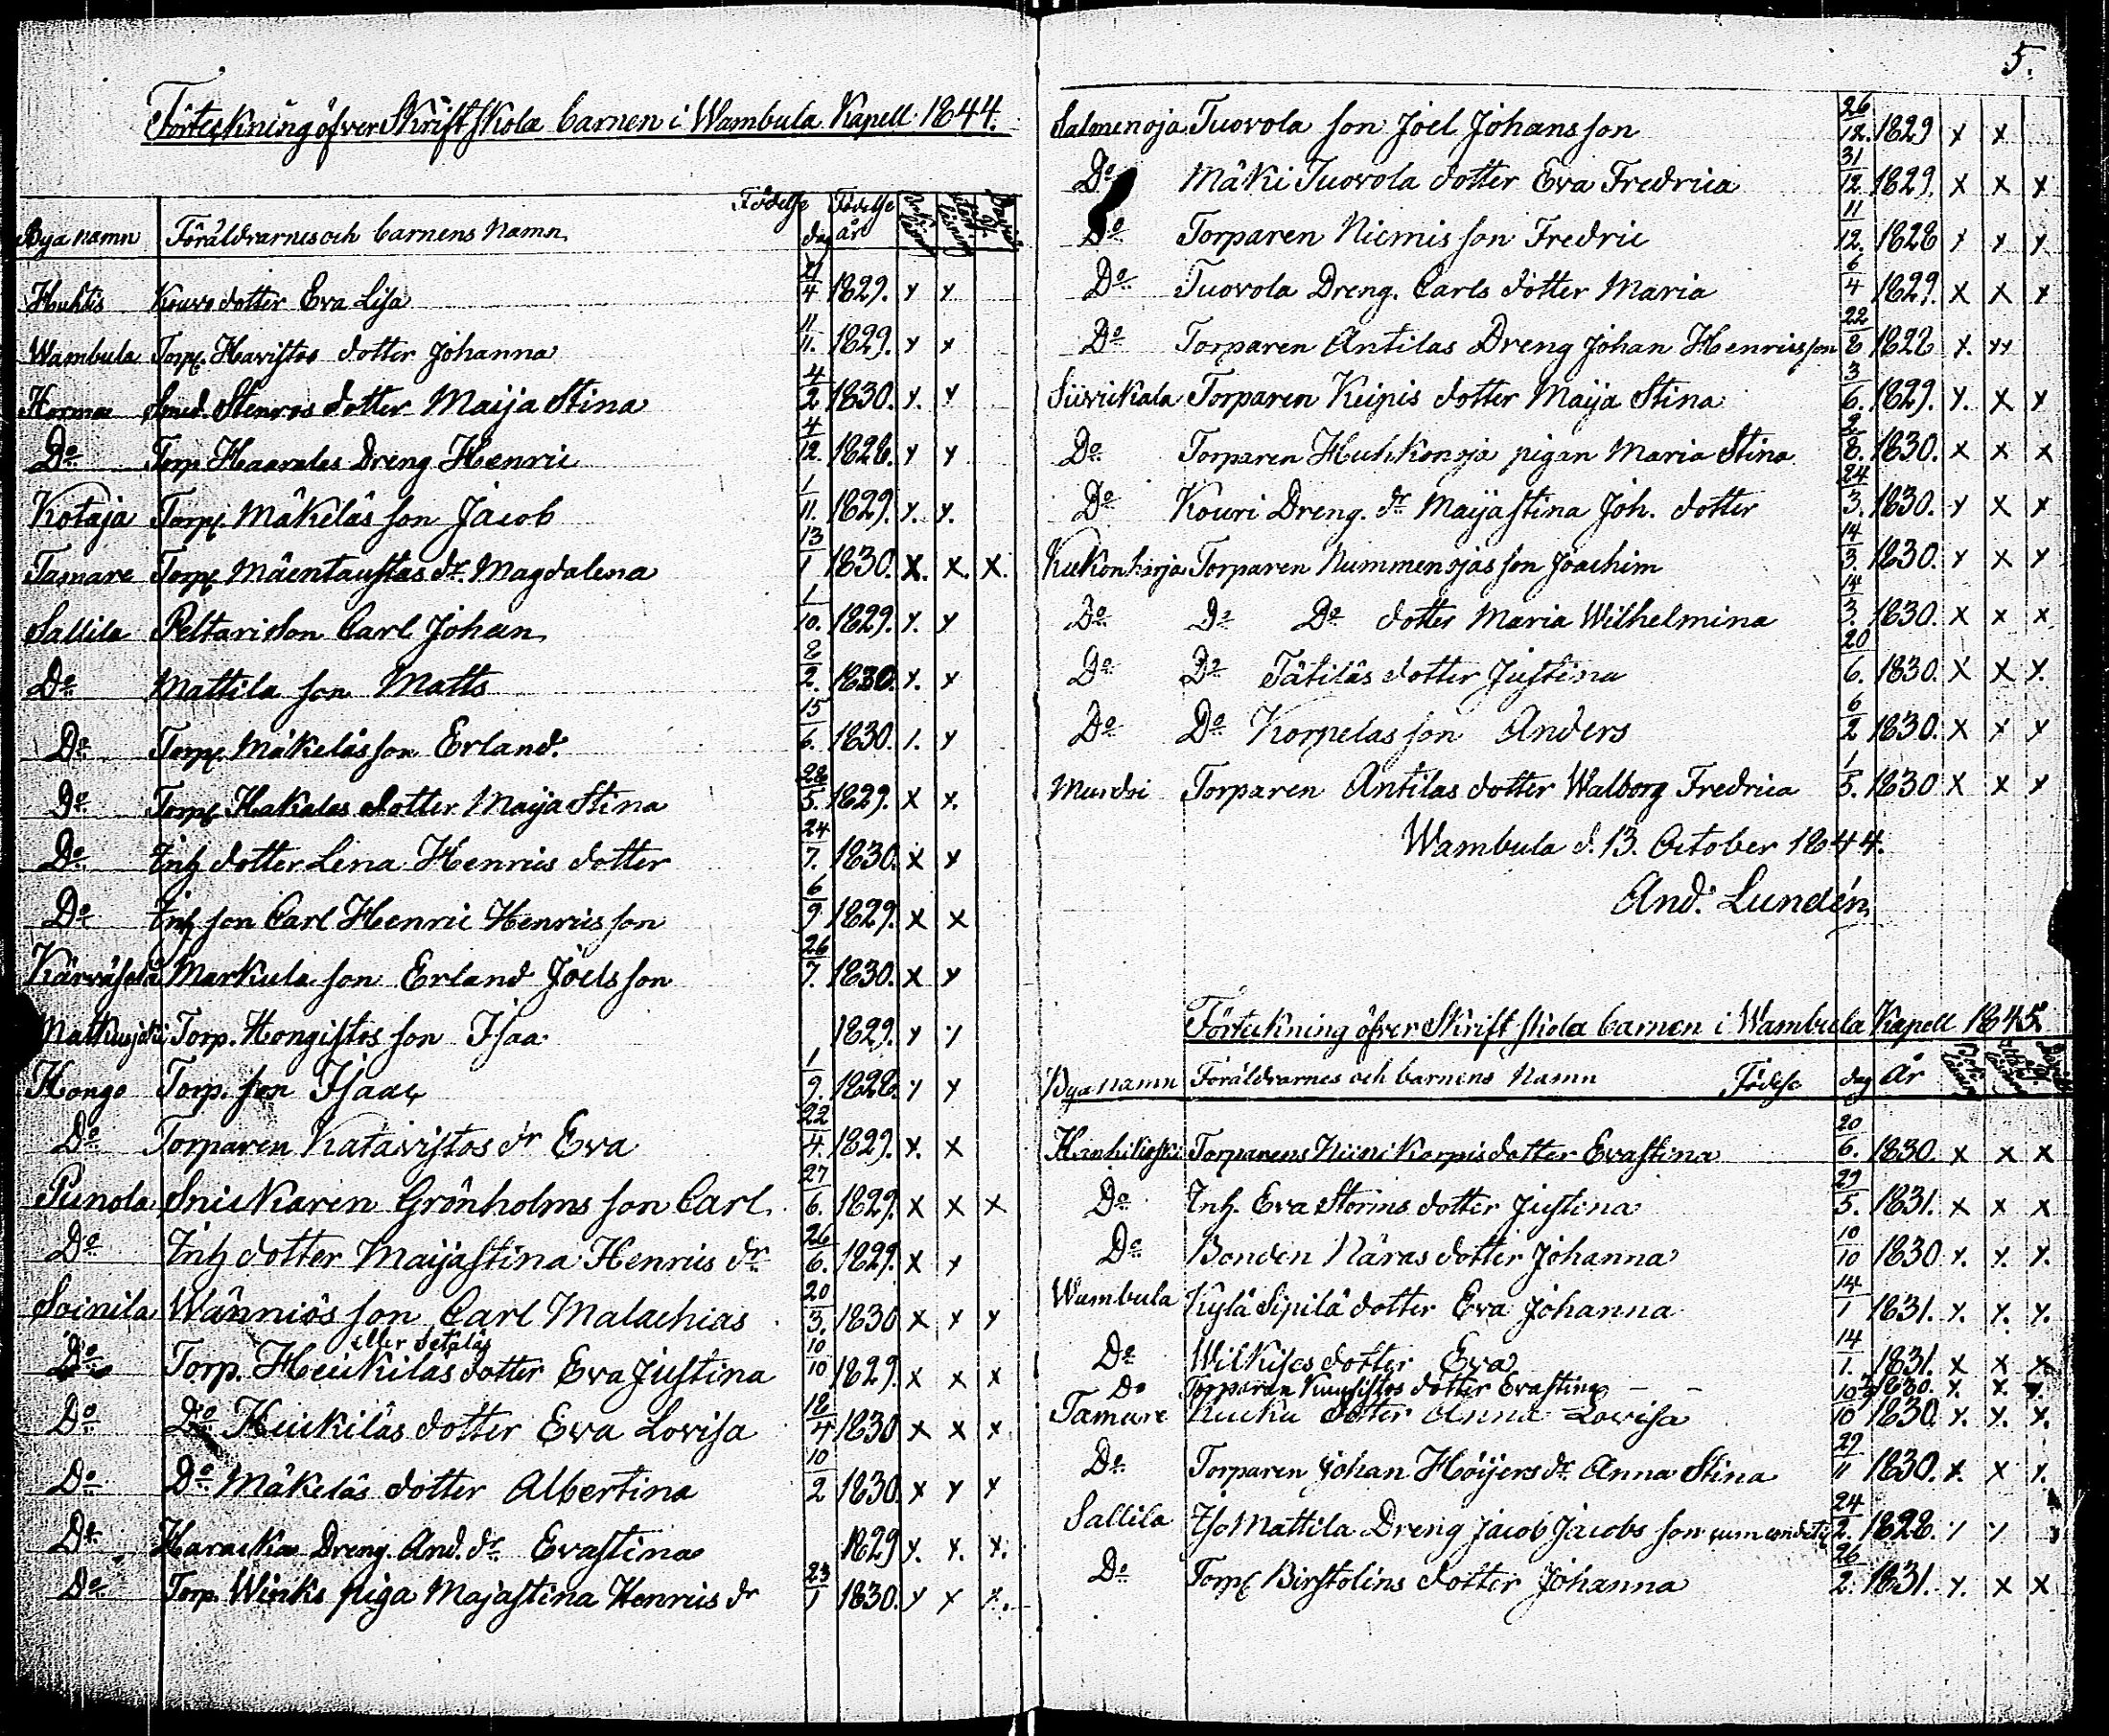 Förteckning öfver Skriftskola barnen i Wambula Kapell 1844.
Bya namn Föräldrarnes och barnens Namn Födelse dag Födelse år
Huhtis Kouvo dotter Eva Lisa 21/4 1829. x x
Wambula Torp. Havistos dotter Johanna 11/11. 1829. x x
Korma Smed. Stenros dotter Maija Stina 4/2 1830. x. x
Do Torp Haarales Dreng Henric 4/12. 1828. x x
Kotaja Torp. Mäkiläs son Jacob 1/11. 1829. x. x.
Tamare Torp. Mäentaustas dr. Magdalena 13/1 1830. x. x. x.
Sallila Peltari son Carl Johan 1/10. 1829. x. x
Do Mattila son Matts 8/2. 1830. x. x
Do Torp. Mäkeläs son Erland. 15/6. 1830. x. x
Do Torp. Hakalas dotter Maija Stina 28/5. 1829. x x.
Do Inh dotter Lena Henrics dotter 24/7. 1830. x x
Do Inh son Carl Henric Henrics son 6/9 1829. x x
Kärväselä Markula son Erland Joels son 26/7. 1830. x x
Torp. Hongistos son Isaa 1829. x x
Hongo Torp. son Isaac 1/9. 1828. x x
Do Torparen Katavistos dr Eva 22/4. 1829. x. x
Punola Snickaren Grönholms son Carl 27/6. 1829. x x x
Do Inh dotter Maijastina Henrics dr. 26/6. 1829. x x
Soinila Wänniös son Carl Malachias 20/3. 1830 x x x
eller Setäläs
Do Torp. Heickilas dotter Eva Justina 10/10 1829. x x x
Do Do Heickiläs dotter Eva Lovisa 18/4 1830 x x x
Do Do Mäkeläs dotter Albertina 10/2 1830. x x x
Do Haracka Dreng. And. dr. Evastina 1829 x. x. x.
Do Torp. Winks piga Majastina Henrics dr 23/1 1830. x x x.
5.
Salmenoja Tuovola son Joel Johansson 26/12. 1829 x x
Do Mäki Tuovola dotter Eva Fredrica 31/12. 1829. x x x
Do Torparen Niemis son Fredric 11/12. 1828 x x x
Do Tuovola Dreng. Carls dotter Maria 6/4 1829. x x x
Do Torparen Antilas Dreng Johan Henricsson 22/8 1828 x. xx
Siivickala Torparen Keipis dotter Maija Stina 3/6. 1829. x. x x
Do Torparen Huhkonoja pigan Maria Stina 2/8. 1830. x x x
Do Kouri Dreng. dr. Maijastina Joh. dotter 24/3. 1830. x x x
Kukonharja Torparen Nummenojas son Joachim 14/3. 1830. x x x
Do Do Do dotter Maria Wilhelmina 14/3. 1830. x x x
Do Do Tätiläs dotter Justina 20/6. 1830. x x x.
Do Do Korpelas son Anders 6/2 1830. x x x
Murdoi Torparen Antilas dotter Walborg Fredrica 1/5. 1830 x x x
Wambula d. 13. October 1844.
And. Lundén
Förteckning öfver Skrift skola barnen i Wambula Kapell 1845.
Bya namn Föräldrarnes och barnens Namn Födelse dag År
Hanhikoski Torparens Niinikorpis dotter Evastina 20/6. 1830. x x x
Do Inh. Eva Storms dotter Justina 29/5. 1831. x x x
Do Bonden Näras dotter Johanna 10/10 1830 x. x. x.
Wambula Kylä Sipilä dotter Eva Johanna 14/1 1831. x. x. x.
Do Wilkises dotter Eva 14/1. 1831. x x x
Do Torparen dotter Evastina 1830. x. x. x.
Tamare Kucku dotter Anna Lovisa 1830. x. x. x.
Do Torparen Johan Höijers dr. Anna Stina 29/11 1830. x. x x.
Sallila Iso Mattila Dreng Jacob Jacobs son 24/2. 1828. x x x
Do Torp. Birstolins dotter Johanna 26/2. 1831. x. x x